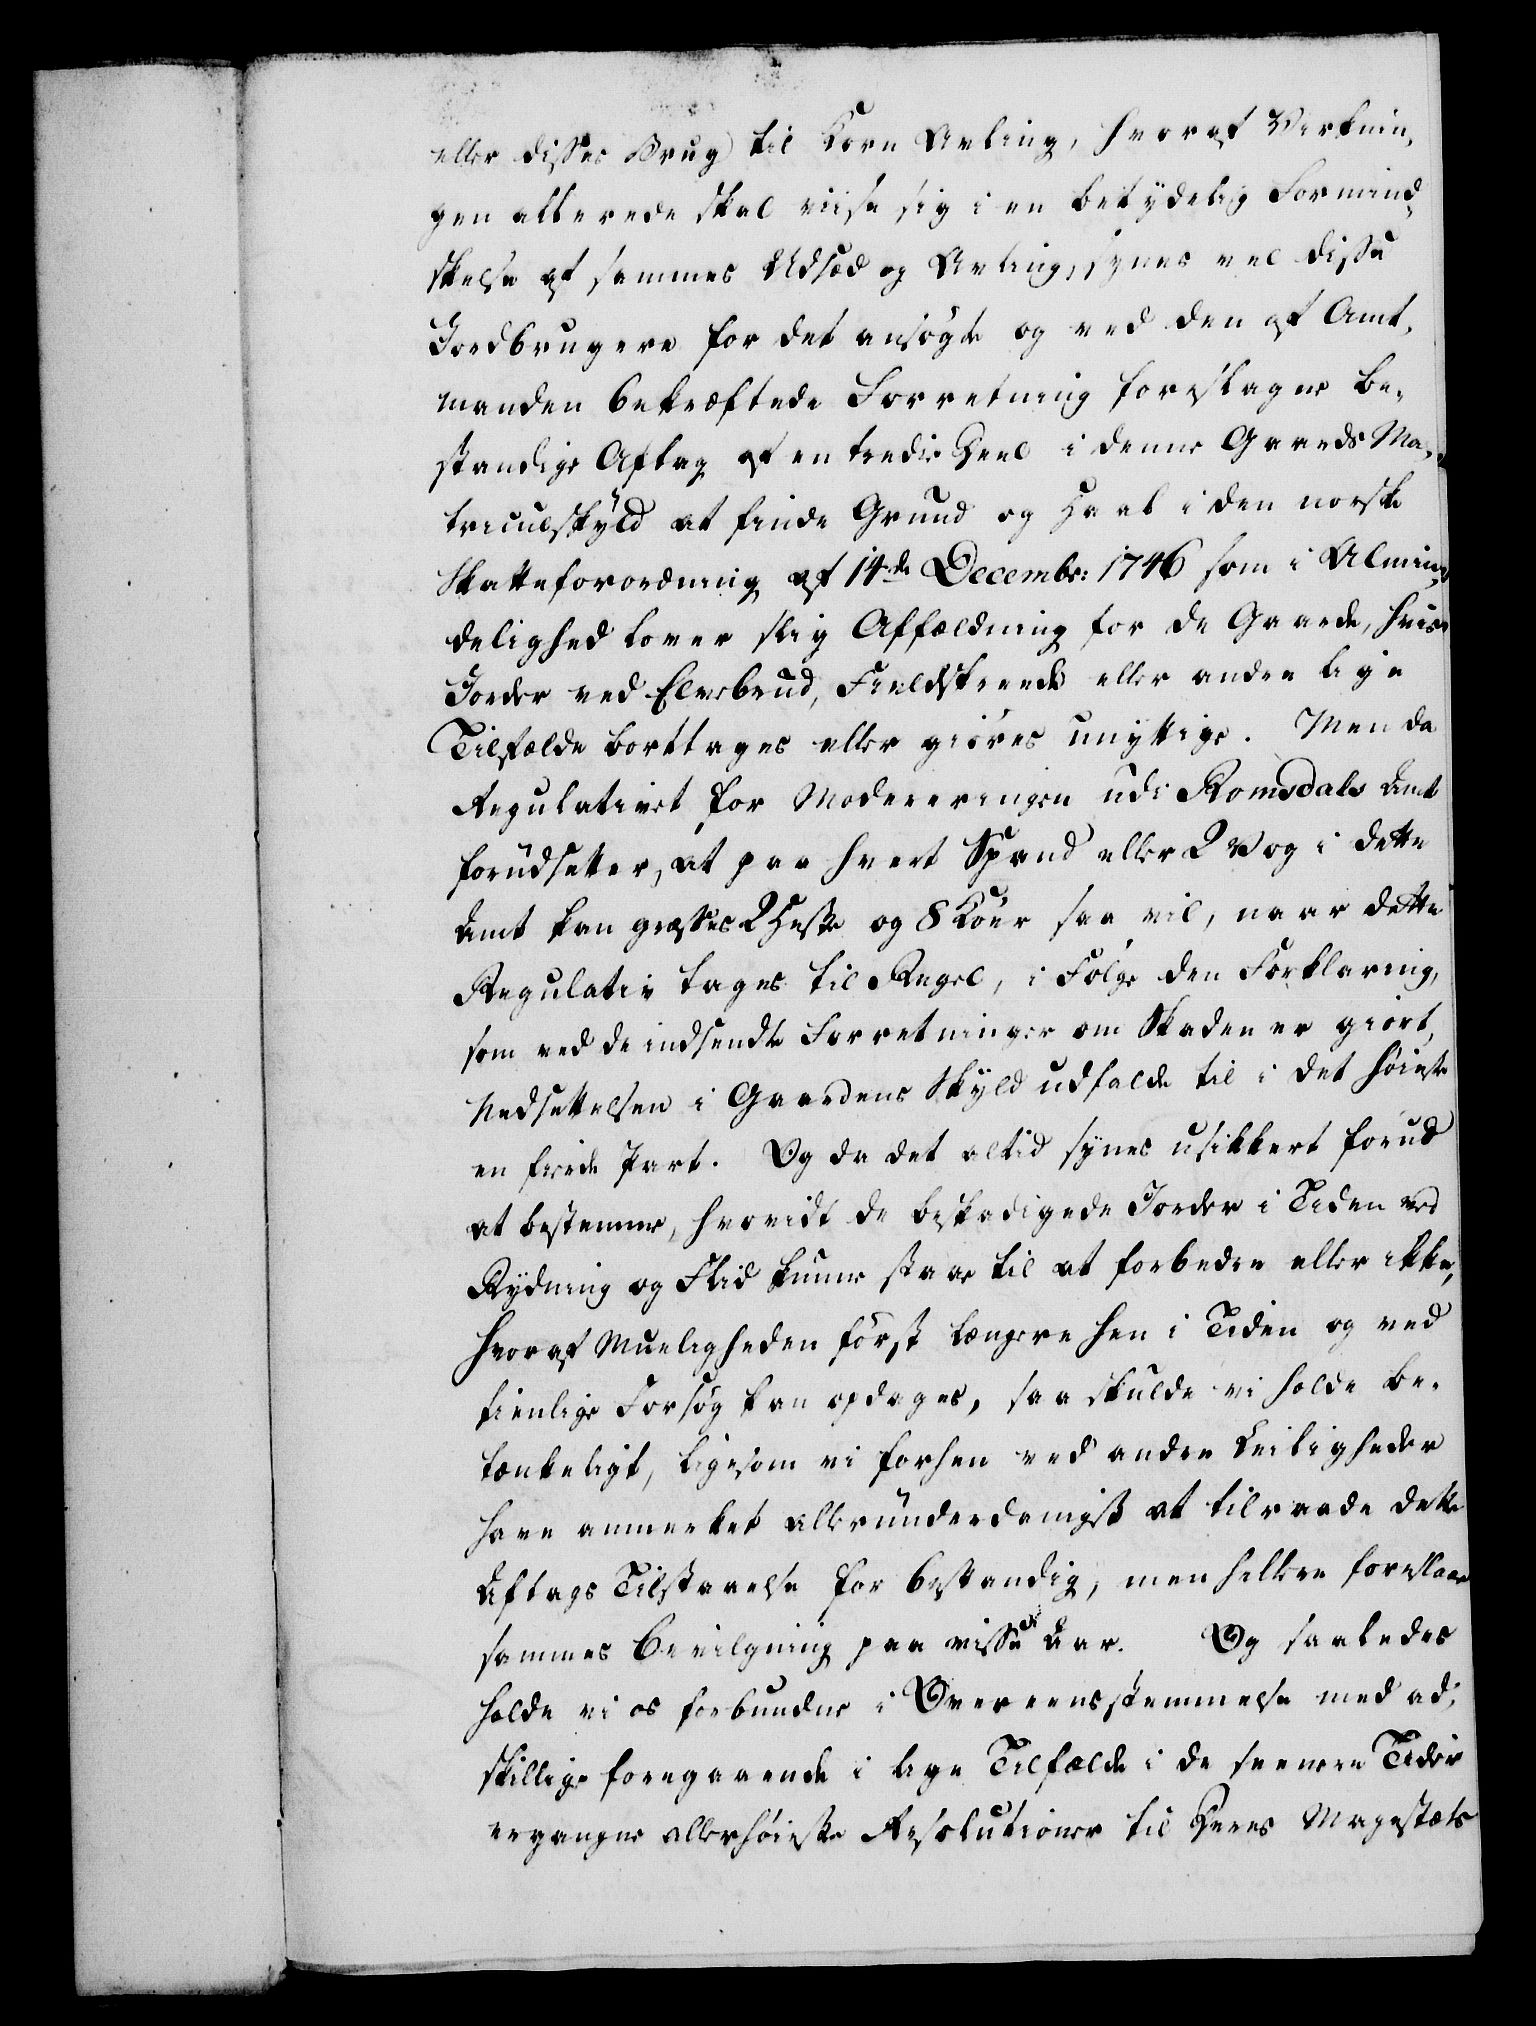 eller disses Brug til Korn Avling, hvoraf Virknin,
gen allerede skal viise sig i en betydelig Formind,
skelse af sammes Udsæd og Avling, synes vel disse
Jordbrugere for det ansøgte og ved den af Amt,
manden bekræftede Forretning foreslagne be,
standige Aftag af en tredie Deel i denne Gaards Ma,
triculskyld at finde Grund og Hæl i den norske
Skatteforordning af 14de Decembr: 1746 som i Almin,
delighed lover slig Affældning for de Gaarde, hvis
Jorder ved Elvebrud, Fieldskreede eller andre lige
Tilfælde borttages eller giöres unyttige. Men da
Regulativet for Modereringen udi Romsdals Amt
forudsetter, at paa hvert Spand eller 2 Vog i dette
Amt kan græsses 2 Heste og 8 Köer saa vil, naar dette
Regulativ tages til Regel, i Fölge den Forklaring,
som ved de indsendte Forretninger om Skaden er giort,
Nedsettelsen i Gaardens Skyld udfalde til i det høieste
en fierde Part. Og da det altid synes usikkert forud
at bestemme, hvorvidt de beskadigede Jorder i Tiden ved
Rydning og Flid kunne staae til at forbedre eller ikke,
hvoraf Mueligheden först længere hen i Tiden og ved
tienlige Forsög kan opdages, saa skulde vi holde be,
tænkeligt, ligesom vi forhen ved andre Leiligheder
have anmerket allerunderdanigst at tilraade dette
Aftags Tilstaaelse for bestandig, men hellere foreslaae
sammes Bevilgning paa visse Aar. Og saaledes
holde vi os forbundne i Overeensstemmelse med ad,
skillige foregaaende i lige Tilfælde i de seenere Tider
ergangne allerhöieste Resolutioner til Deres Majestæts